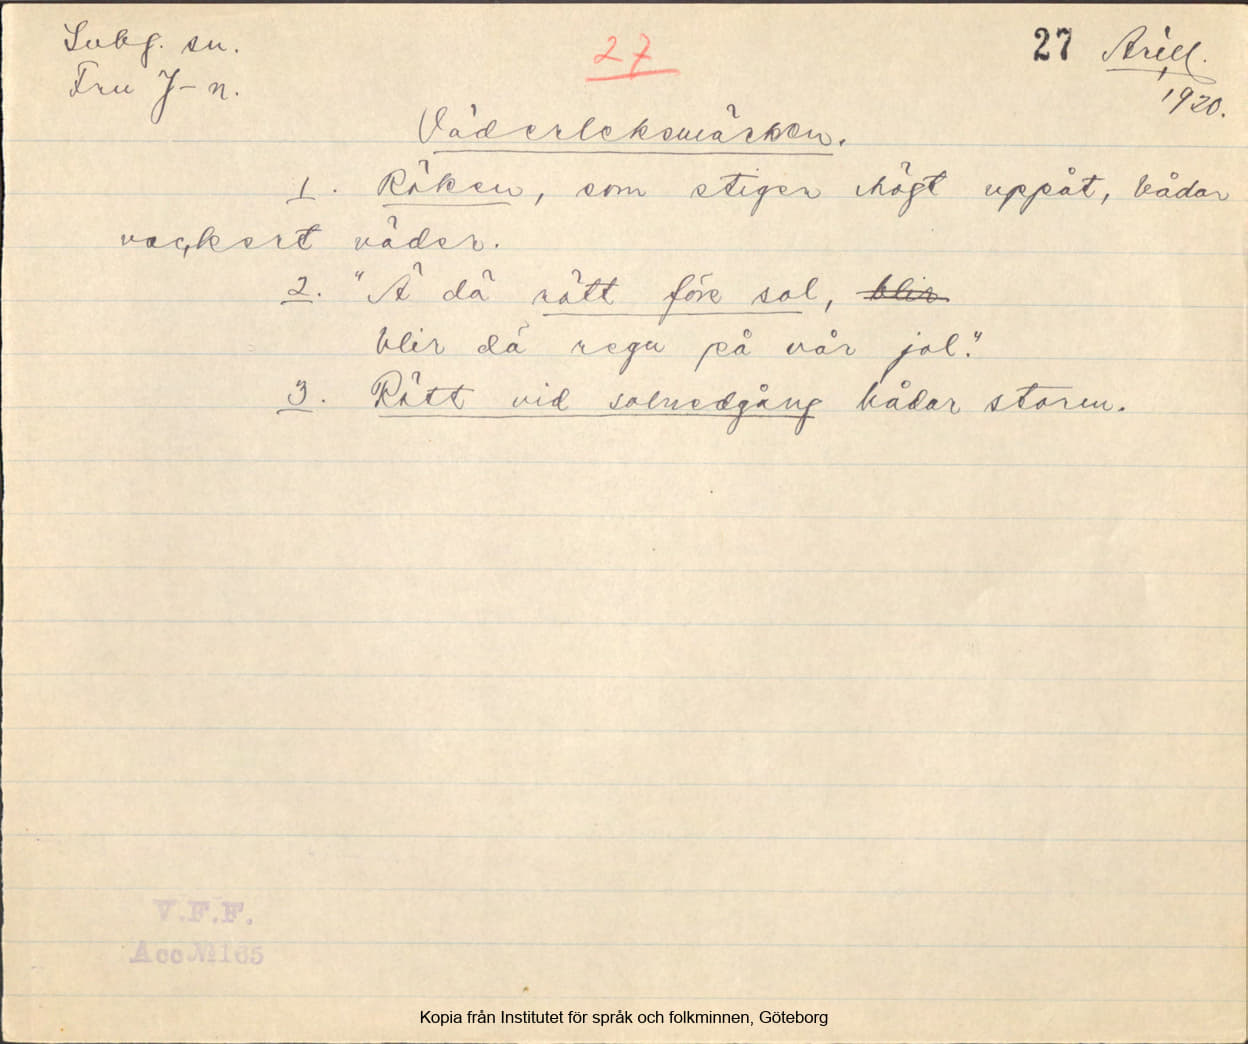 Subg. sn.
Fru J-n.
27
27 Arill.
1920.
Väderleksmärken.
1. Röken, som stiger högt uppåt, bådar
vackert väder.
2. "Ä dä rött före sol, blir
blir dä regn på vår jol."
3. Rött vid solnedgång bådar storm.
V.F.F.
Acc №165
Kopia från Institutet för språk och folkminnen, Göteborg